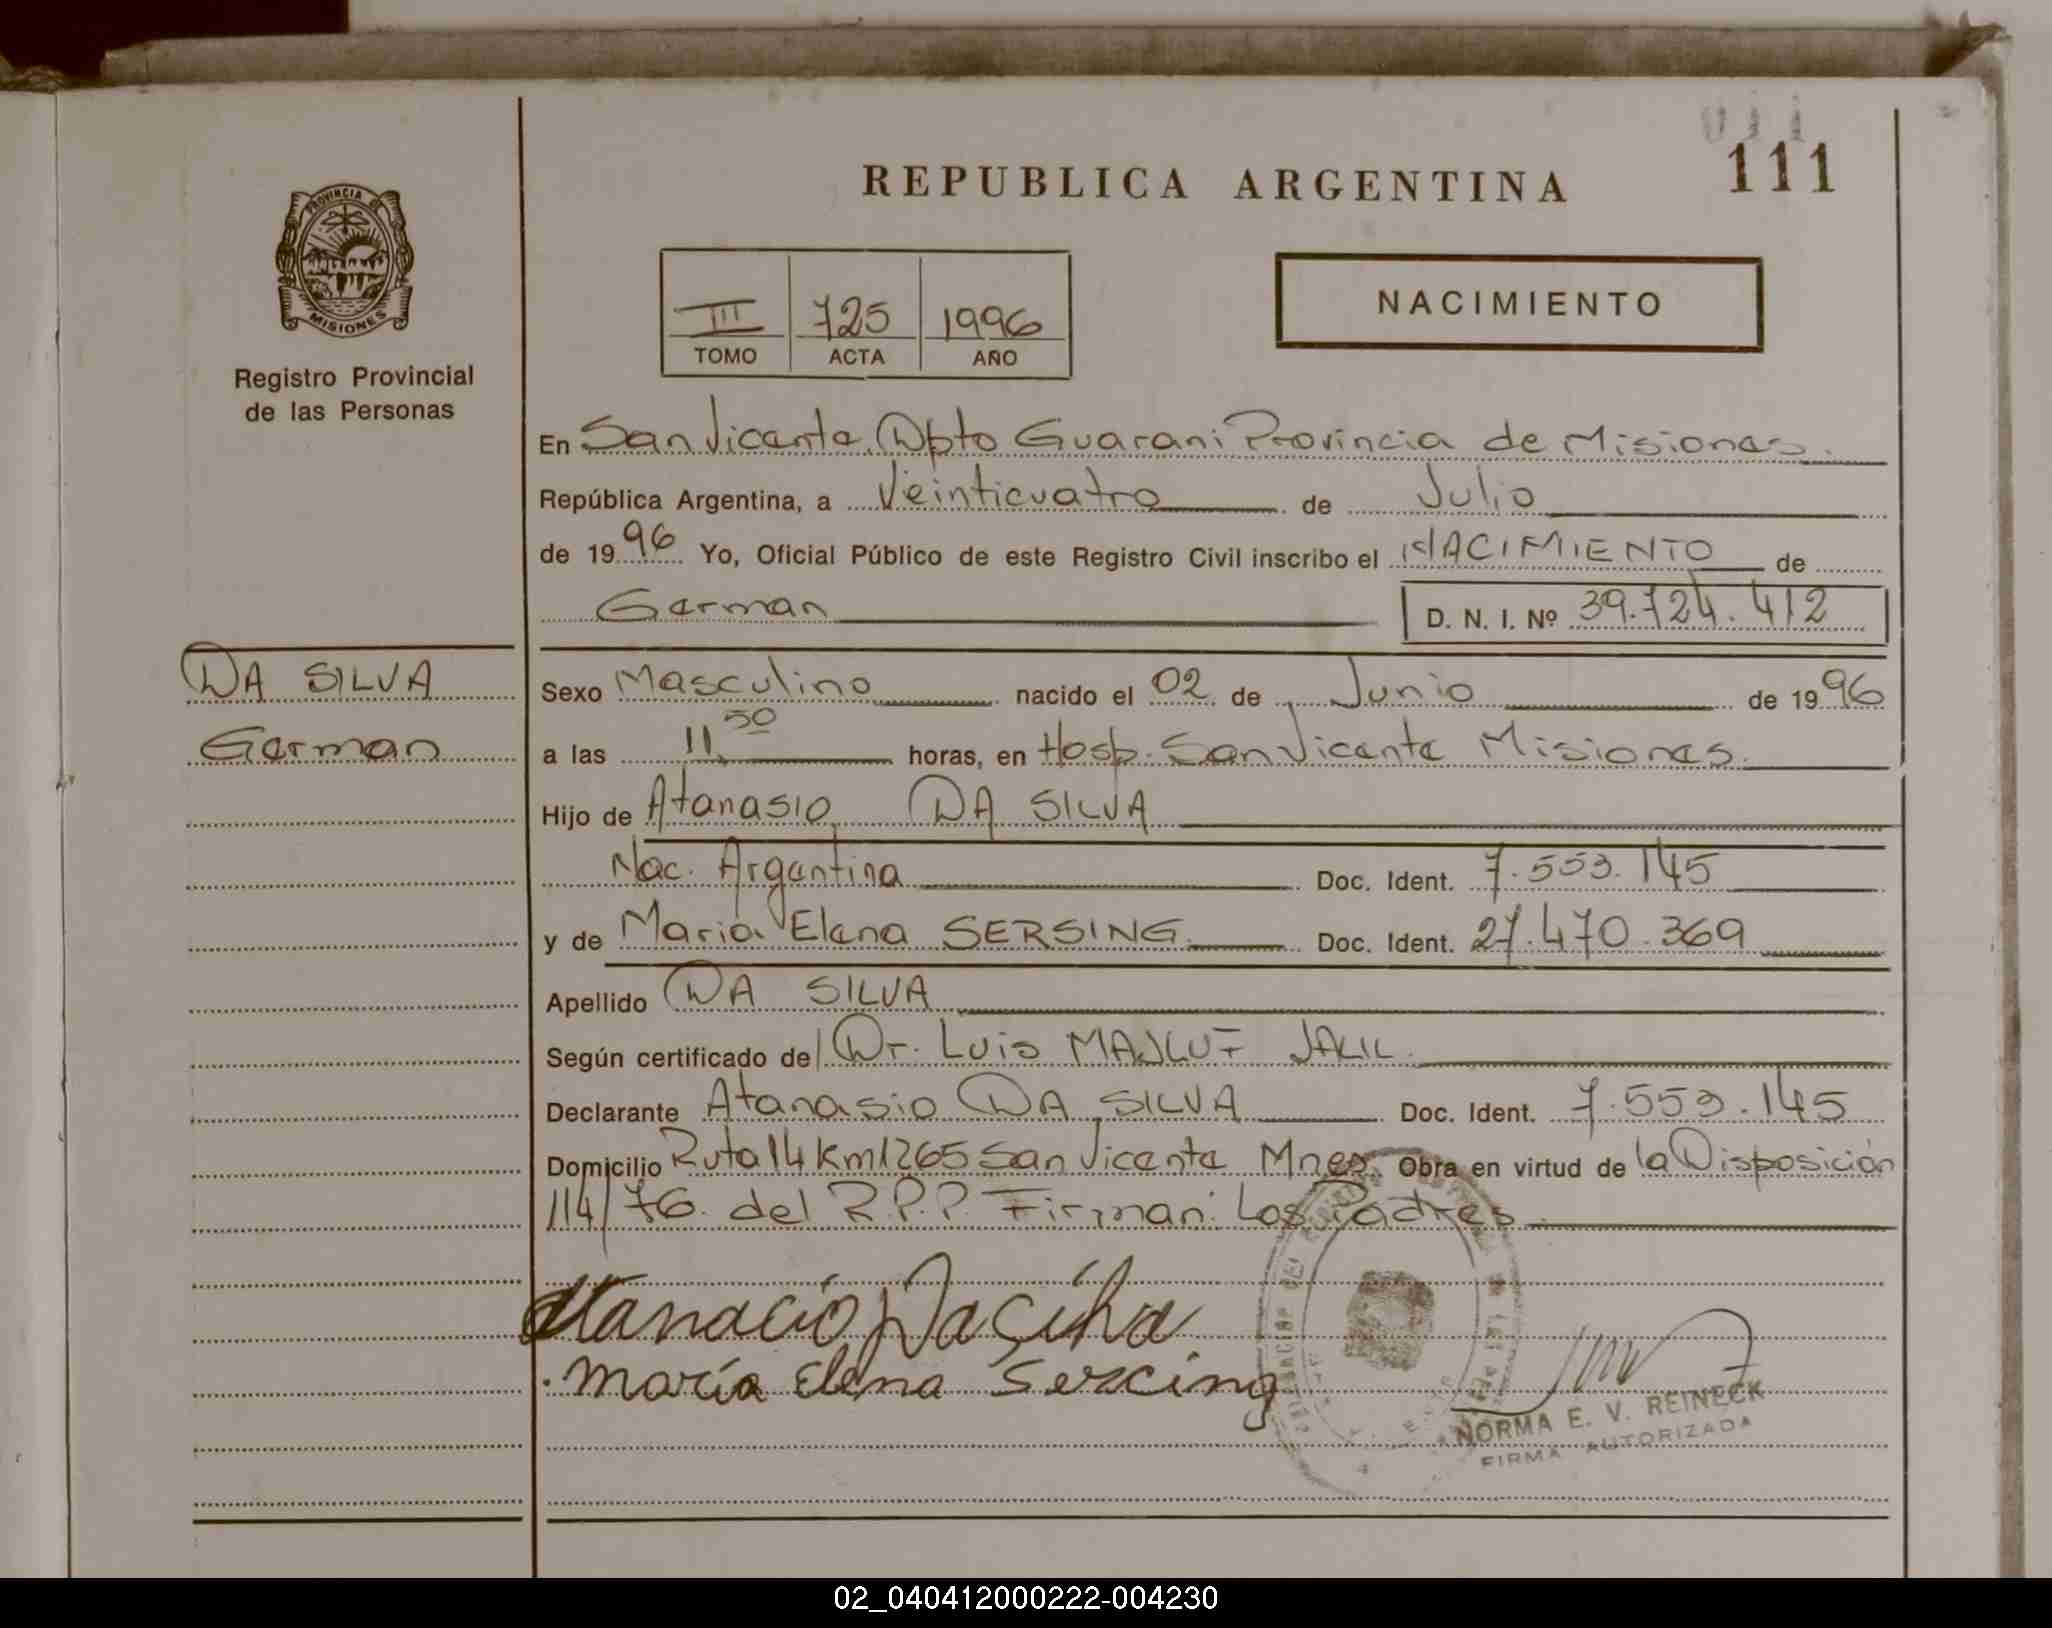 011
111
REPUBLICA ARGENTINA
PROVINCIA DE
MISIONES
Registro Provincial
de las Personas
III 725 1996
TOMO ACTA AÑO
NACIMIENTO
En San Vicente, Dpto Guarani Provincia de Misiones
República Argentina, a Veinticuatro de Julio
de 1996 Yo, Oficial Público de este Registro Civil inscribo el NACIMIENTO de
German D. N. I. Nº 39.724.412
DA SILVA
German
Sexo Masculino nacido el 02 de Junio de 1996
a las 11,50 horas, en Hosp. San Vicente Misiones.
Hijo de Atanasio DA SILVA
Nac. Argentina Doc. Ident. 7.553.145
y de Maria Elena SERSING Doc. Ident. 27.470.369
Apellido DA SILVA
Según certificado de Dr. Luis MAJLUF JALIL.
Declarante Atanasio DA SILVA Doc. Ident. 7.553.145
Domicilio Ruta 14 Km 1265 San Vicente Mnes. Obra en virtud de la Disposición
114/76. del R.P.P. Firman: Los Padres.
Atanacio Da Silva
María Elena Sercing
NORMA E. V. REINECK
FIRMA AUTORIZADA
02_040412000222-004230